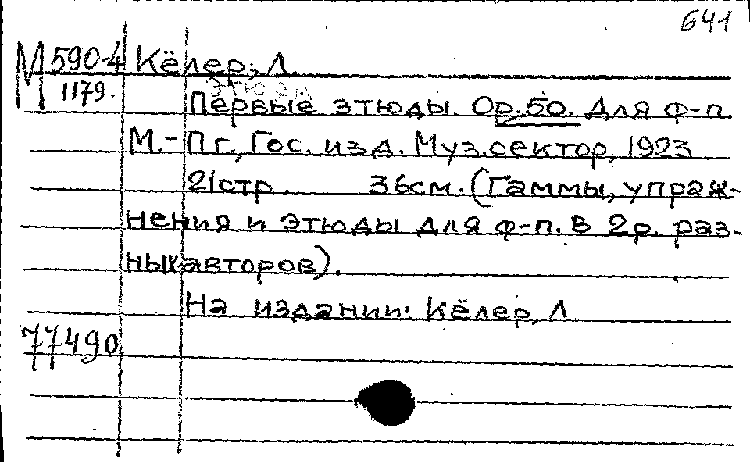 641
М 590-4 Кёлер, Л.
1179.
Первые этюды. Op. 50. Для ф-п.
М.-Пг., Гос. изд. Муз. сектор, 1923
21стр 36см. (Гаммы, упраж-
нения и этюды для ф-п. в 2р. раз-
ных авторов).
На издании: Кёлер, Л.
77490